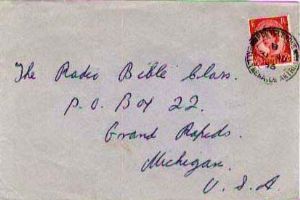 The Radio Bible Class.
P.O. Box 22.
Grand Rapids.
Michigan.
U.S.A